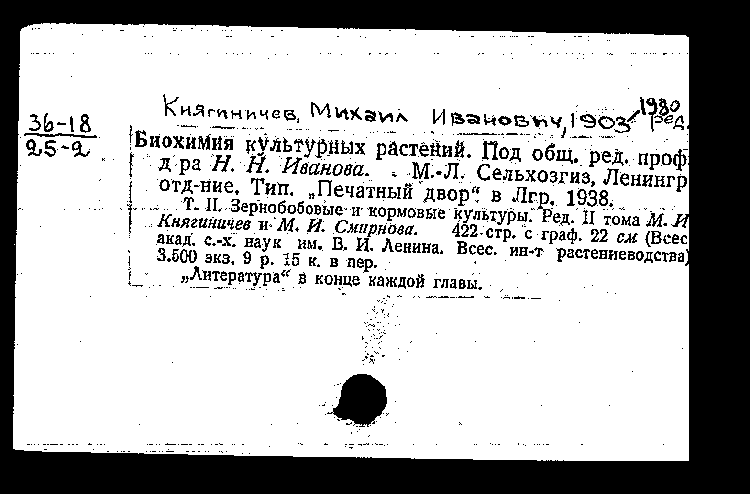 1980
Княгиничев, Михаил Иванович, 1903- ред.
36-18
25-2
Биохимия культурных растений. Под общ. ред. проф
д ра Н. Н. Иванова. М.-Л. Сельхозгиз, Ленингр
отд-ние. Тип. „Печатный двор“ в Лгр. 1938.
Т. II. Зернобобовые и кормовые культуры. Ред. II тома М. И
Княгиничев и М. И. Смирнова. 422 стр. с граф. 22 см (Всес
акад. с.-х. наук им. В. И. Ленина. Всес. ин-т растениеводства)
3.500 экз. 9 р. 15 к. в пер.
„Литература“ в конце каждой главы.